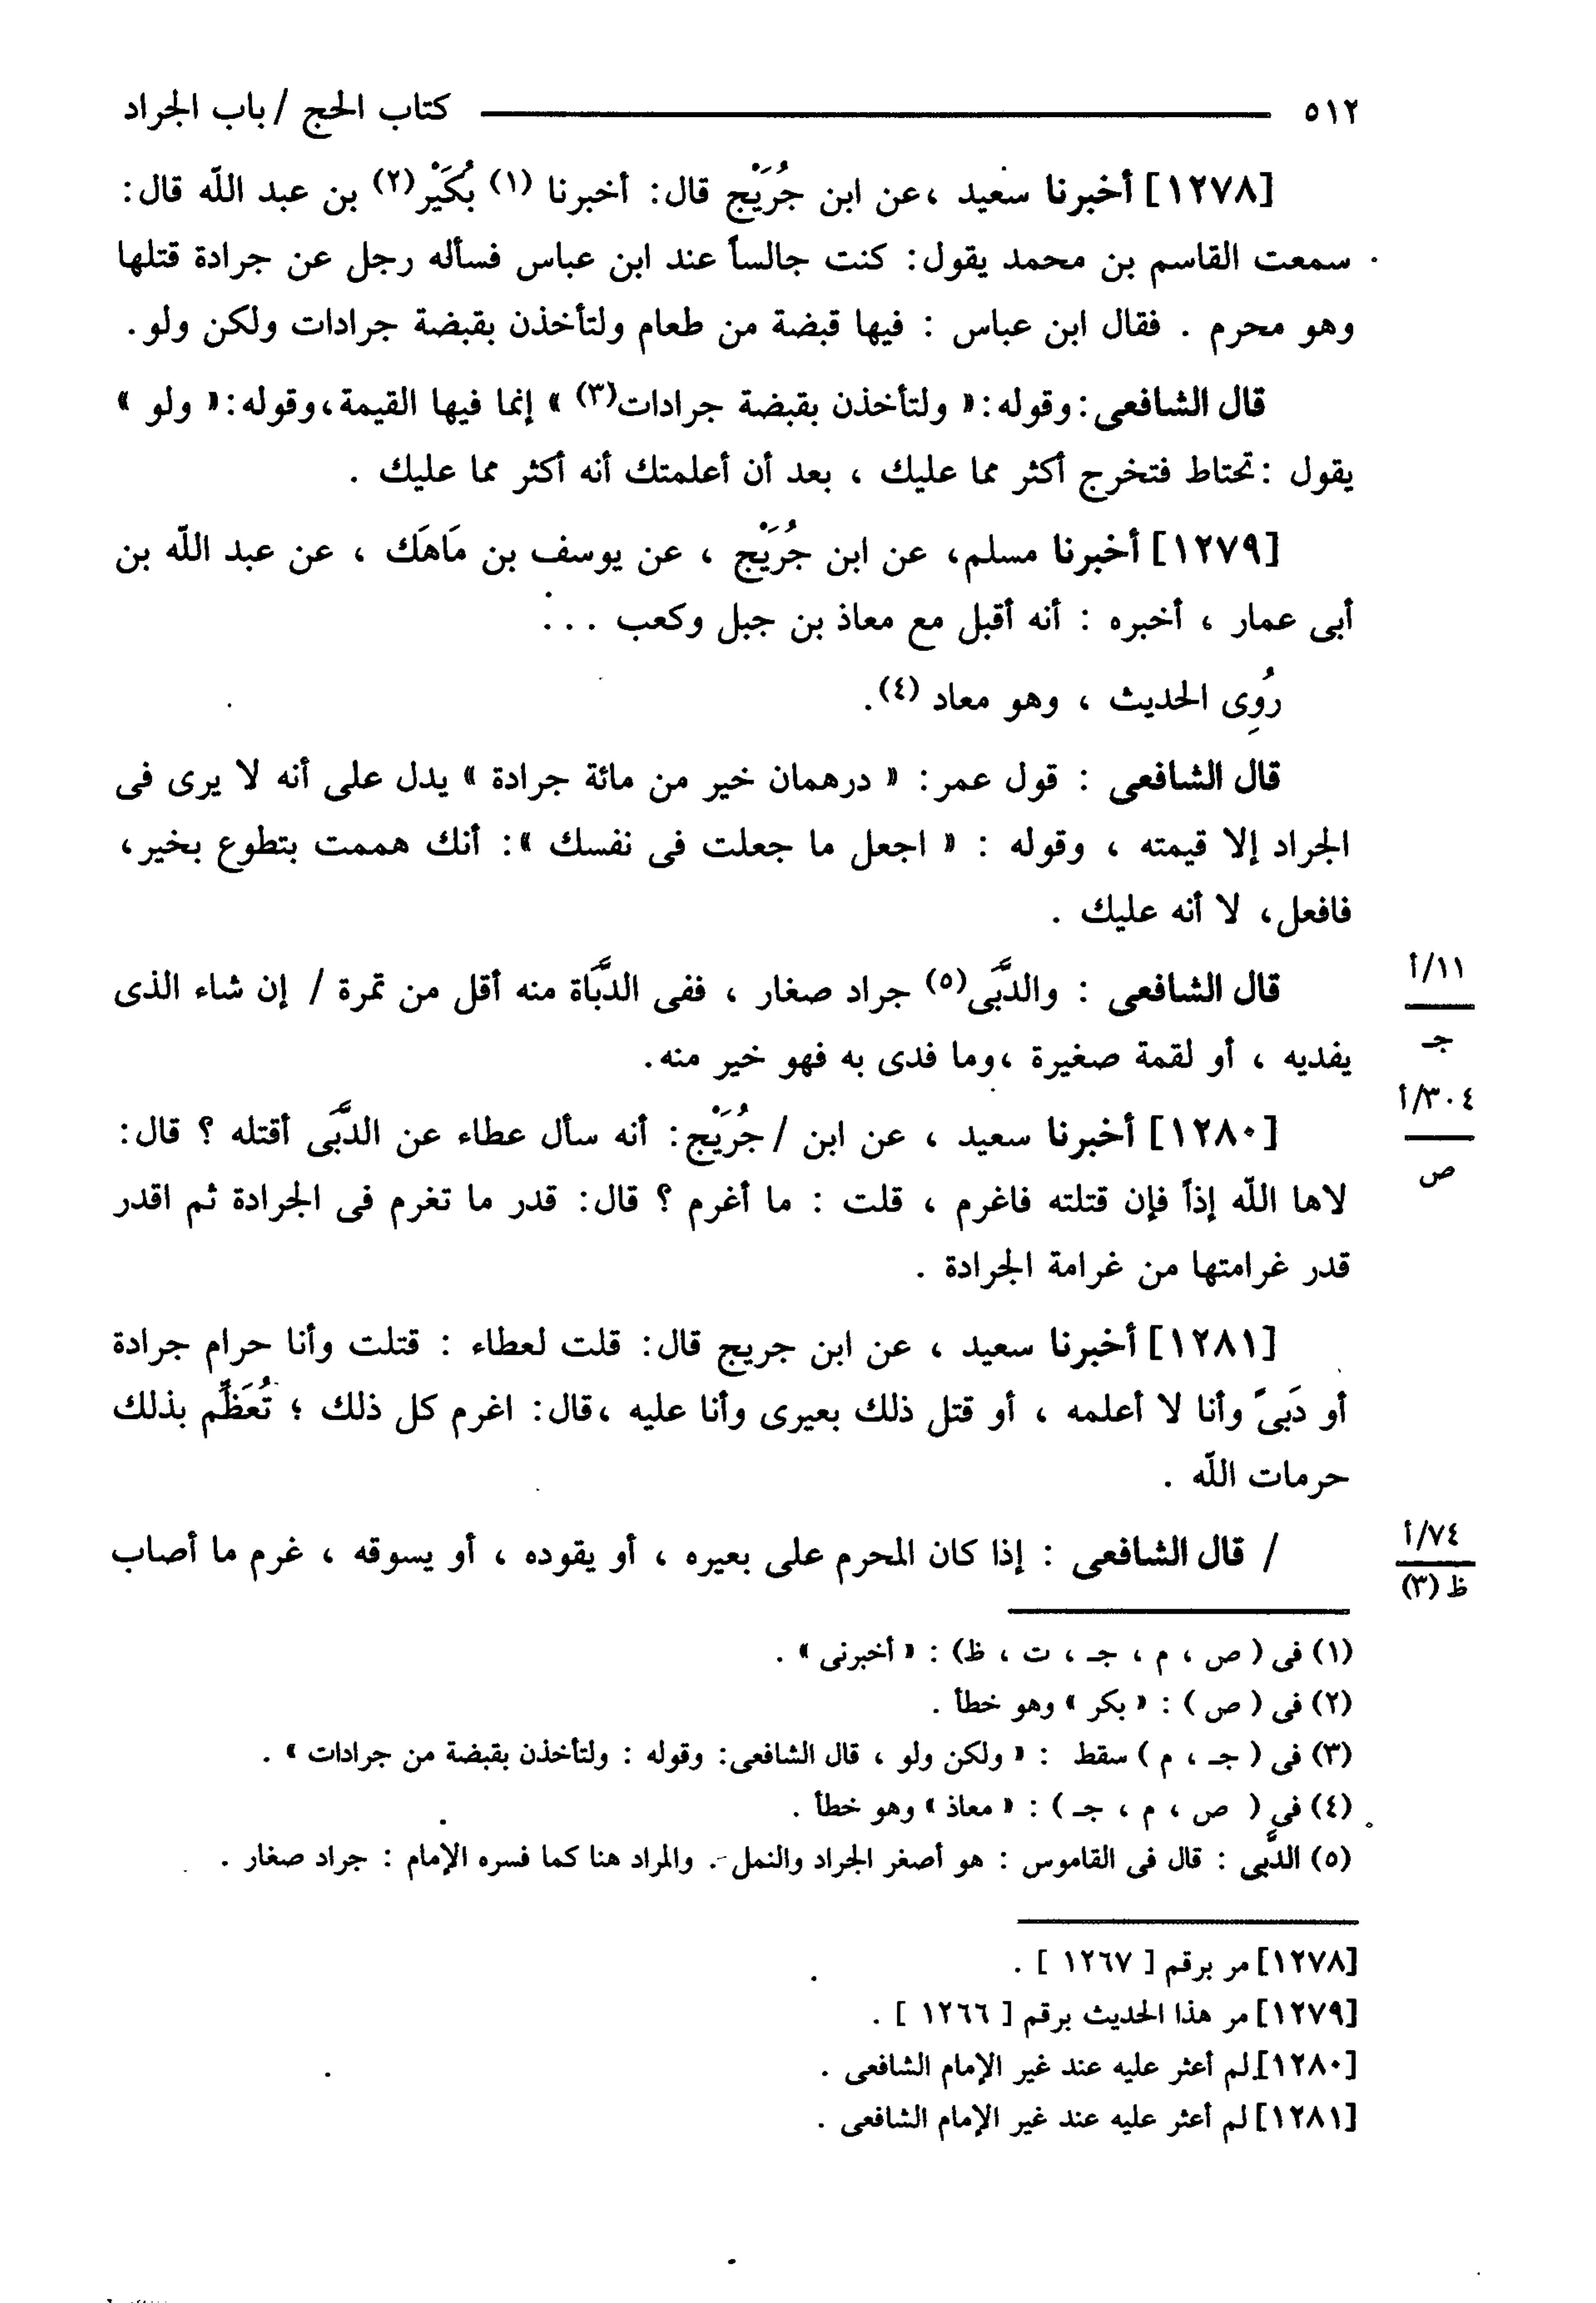 ٥١٢ كتاب الحج / باب الجراد
[١٢٧٨] أخبرنا سعيد ، عن ابن جُرَيْج قال: أخبرنا (١) بُكَيْر(٢) بن عبد اللّه قال:
سمعت القاسم بن محمد يقول: كنت جالساً عند ابن عباس فسأله رجل عن جرادة قتلها
وهو محرم . فقال ابن عباس : فيها قبضة من طعام ولتأخذن بقبضة جرادات ولكن ولو .
قال الشافعى : وقوله: « ولتأخذن بقبضة جرادات(٣) » إنما فيها القيمة، وقوله: « ولو »
يقول : تحتاط فتخرج أكثر مما عليك ، بعد أن أعلمتك أنه أكثر مما عليك .
[١٢٧٩] أخبرنا مسلم، عن ابن جُرَيْج ، عن يوسف بن مَاهَك ، عن عبد اللّه بن
أبى عمار ، أخبره : أنه أقبل مع معاذ بن جبل وكعب . . .
رُوِى الحديث ، وهو معاد (٤).
قال الشافعى : قول عمر: « درهمان خير من مائة جرادة » يدل على أنه لا يرى فى
الجراد إلا قيمته ، وقوله : « اجعل ما جعلت فى نفسك »: أنك هممت بتطوع بخير،
فافعل، لا أنه عليك .
قال الشافعى : والدَّبَى(٥) جراد صغار ، ففى الدَّبَاة منه أقل من تمرة / إن شاء الذى
١١/أ
جـ
يفديه ، أو لقمة صغيرة ، وما فدى به فهو خير منه.
[١٢٨٠] أخبرنا سعيد ، عن ابن / جُرَيْج: أنه سأل عطاء عن الدَّبَى أقتله ؟ قال:
٣٠٤/أ
ص
لاها اللّه إذاً فإن قتلته فاغرم ، قلت : ما أغرم ؟ قال: قدر ما تغرم فى الجرادة ثم اقدر
قدر غرامتها من غرامة الجرادة .
[١٢٨١] أخبرنا سعيد ، عن ابن جريج قال: قلت لعطاء : قتلت وأنا حرام جرادة
أو دَبىً وأنا لا أعلمه ، أو قتل ذلك بعيرى وأنا عليه ، قال: اغرم كل ذلك ؛ تُعَظِّم بذلك
حرمات اللّه .
/ قال الشافعى : إذا كان المحرم على بعيره ، أو يقوده ، أو يسوقه ، غرم ما أصاب
٧٤/أ
ظ (٣)
(١) فى ( ص ، م ، جـ ، ت ، ظ) : « أخبرنى » .
(٢) فى ( ص ) : « بكر » وهو خطأ .
(٣) فى ( جـ ، م ) سقط : « ولكن ولو ، قال الشافعى: وقوله : ولتأخذن بقبضة من جرادات » .
(٤) فى ( ص ، م ، جـ ) : « معاذ » وهو خطأ .
(٥) الدَّبَى : قال فى القاموس : هو أصغر الجراد والنمل . والمراد هنا كما فسره الإمام : جراد صغار .
[١٢٧٨] مر برقم [ ١٢٦٧ ] .
[١٢٧٩] مر هذا الحديث برقم [ ١٢٦٦ ] .
[١٢٨٠] لم أعثر عليه عند غير الإمام الشافعى .
[١٢٨١] لم أعثر عليه عند غير الإمام الشافعى .